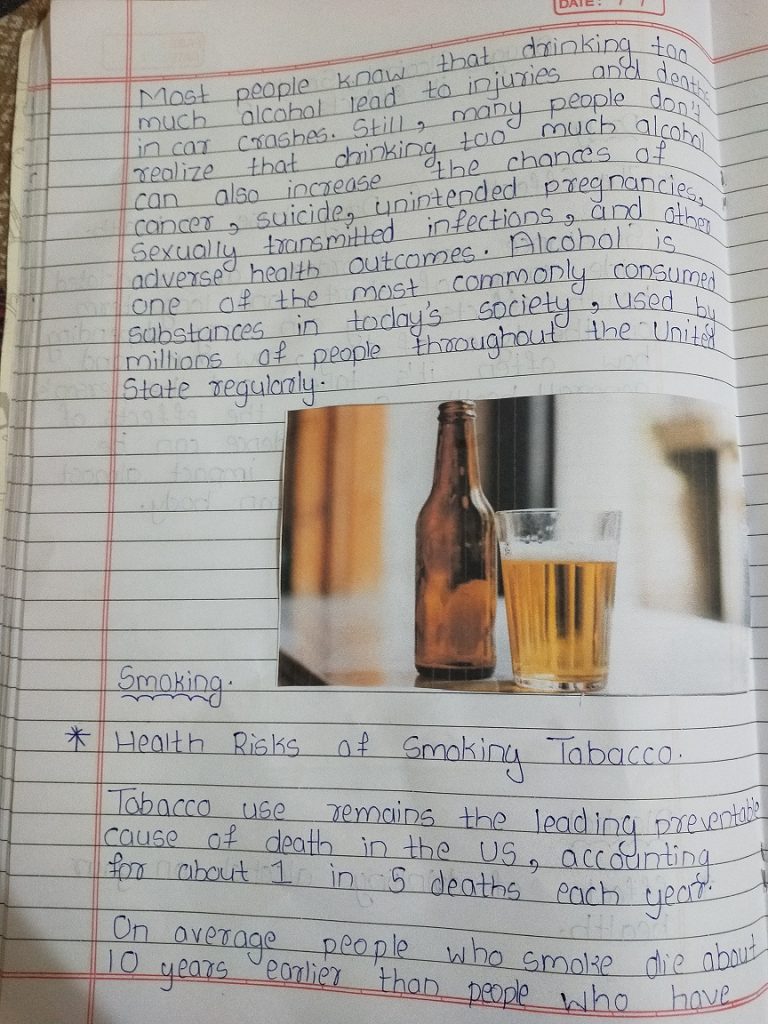 DATE: / /
Most people know that drinking too
much alcohol lead to injuries and deaths
in car crashes. Still, many people don't
realize that drinking too much alcohol
can also increase the chances of
cancer, suicide, unintended pregnancies,
sexually transmitted infections, and other
adverse health outcomes. Alcohol is
one of the most commonly consumed
substances in today's society, used by
millions of people throughout the United
State regularly.
Smoking.
* Health Risks of Smoking Tabacco.
Tobacco use remains the leading preventable
cause of death in the US, accounting
for about 1 in 5 deaths each year.
On average people who smoke die about
10 years earlier than people who have